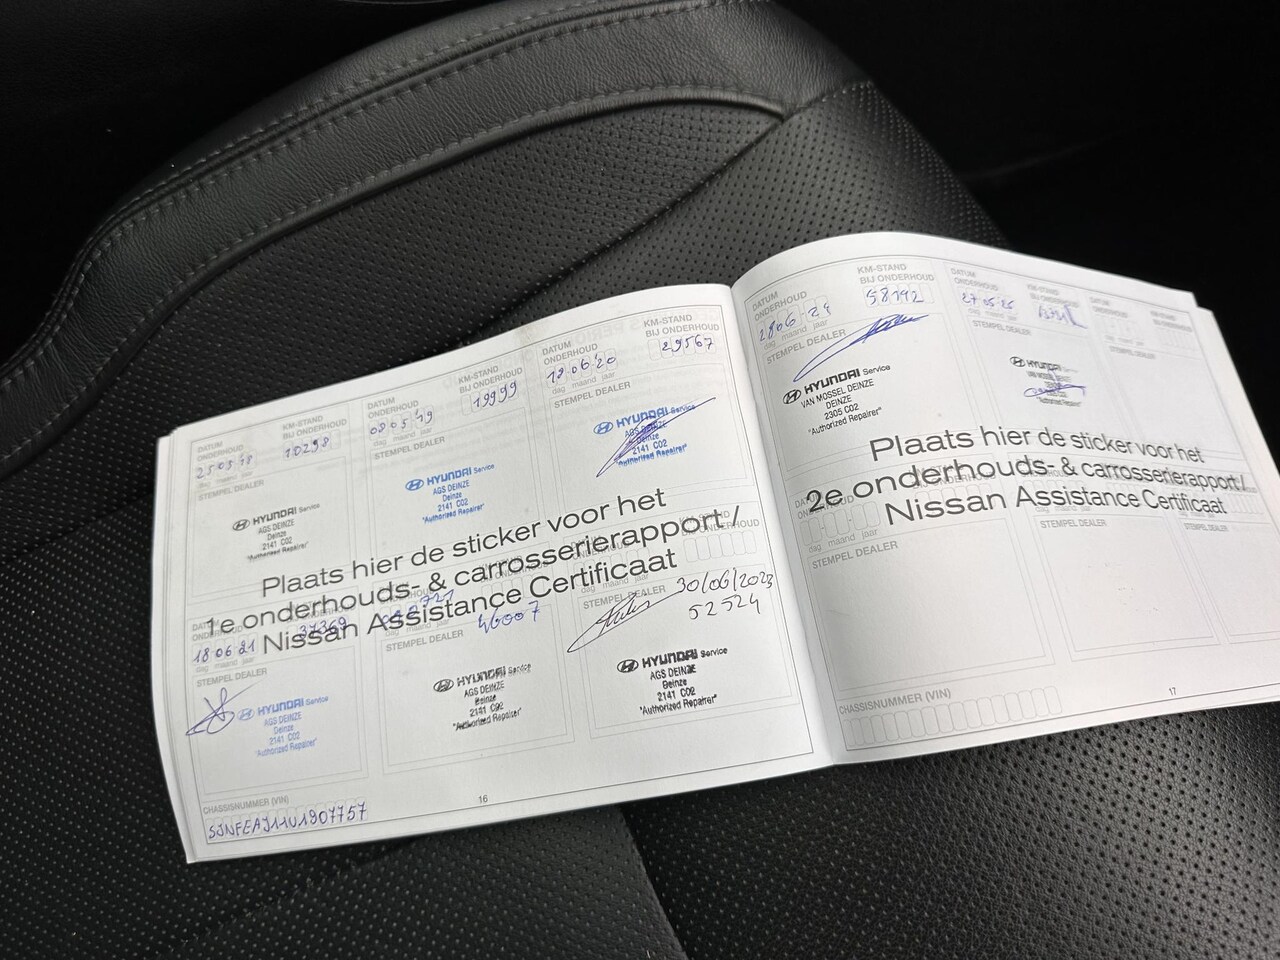 DATUM ONDERHOUD
KM-STAND BIJ ONDERHOUD
25 05 18
10298
dag maand jaar
STEMPEL DEALER
HYUNDAI Service
AGS DEINZE
Deinze
2141 C02
"Authorized Repairer"
DATUM ONDERHOUD
KM-STAND BIJ ONDERHOUD
08 05 19
19999
dag maand jaar
STEMPEL DEALER
HYUNDAI Service
AGS DEINZE
Deinze
2141 C02
"Authorized Repairer"
DATUM ONDERHOUD
KM-STAND BIJ ONDERHOUD
18 06 20
29567
dag maand jaar
STEMPEL DEALER
HYUNDAI Service
AGS DEINZE
Deinze
2141 C02
"Authorized Repairer"
Plaats hier de sticker voor het
1e onderhouds- & carrosserierapport /
Nissan Assistance Certificaat
ONDERHOUD
18 06 21
37369
dag maand jaar
STEMPEL DEALER
HYUNDAI Service
AGS DEINZE
Deinze
2141 C02
"Authorized Repairer"
46007
STEMPEL DEALER
HYUNDAI Service
AGS DEINZE
Deinze
2141 C02
"Authorized Repairer"
ONDERHOUD
dag maand jaar
STEMPEL DEALER
30/06/2023
52524
HYUNDAI Service
AGS DEINZE
Deinze
2141 C02
"Authorized Repairer"
CHASSISNUMMER (VIN)
SJNFEAJ11U1907757
16
DATUM ONDERHOUD
KM-STAND BIJ ONDERHOUD
28 06 24
58192
dag maand jaar
STEMPEL DEALER
HYUNDAI Service
VAN MOSSEL DEINZE
DEINZE
2305 C02
"Authorized Repairer"
DATUM ONDERHOUD
KM-STAND BIJ ONDERHOUD
27 05 25
dag maand jaar
STEMPEL DEALER
HYUNDAI Service
VAN MOSSEL DEINZE
"Authorized Repairer"
DATUM ONDERHOUD
KM-STAND BIJ ONDERHOUD
STEMPEL DEALER
Plaats hier de sticker voor het
2e onderhouds- & carrosserierapport /
Nissan Assistance Certificaat
dag maand jaar
STEMPEL DEALER
STEMPEL DEALER
STEMPEL DEALER
CHASSISNUMMER (VIN)
17